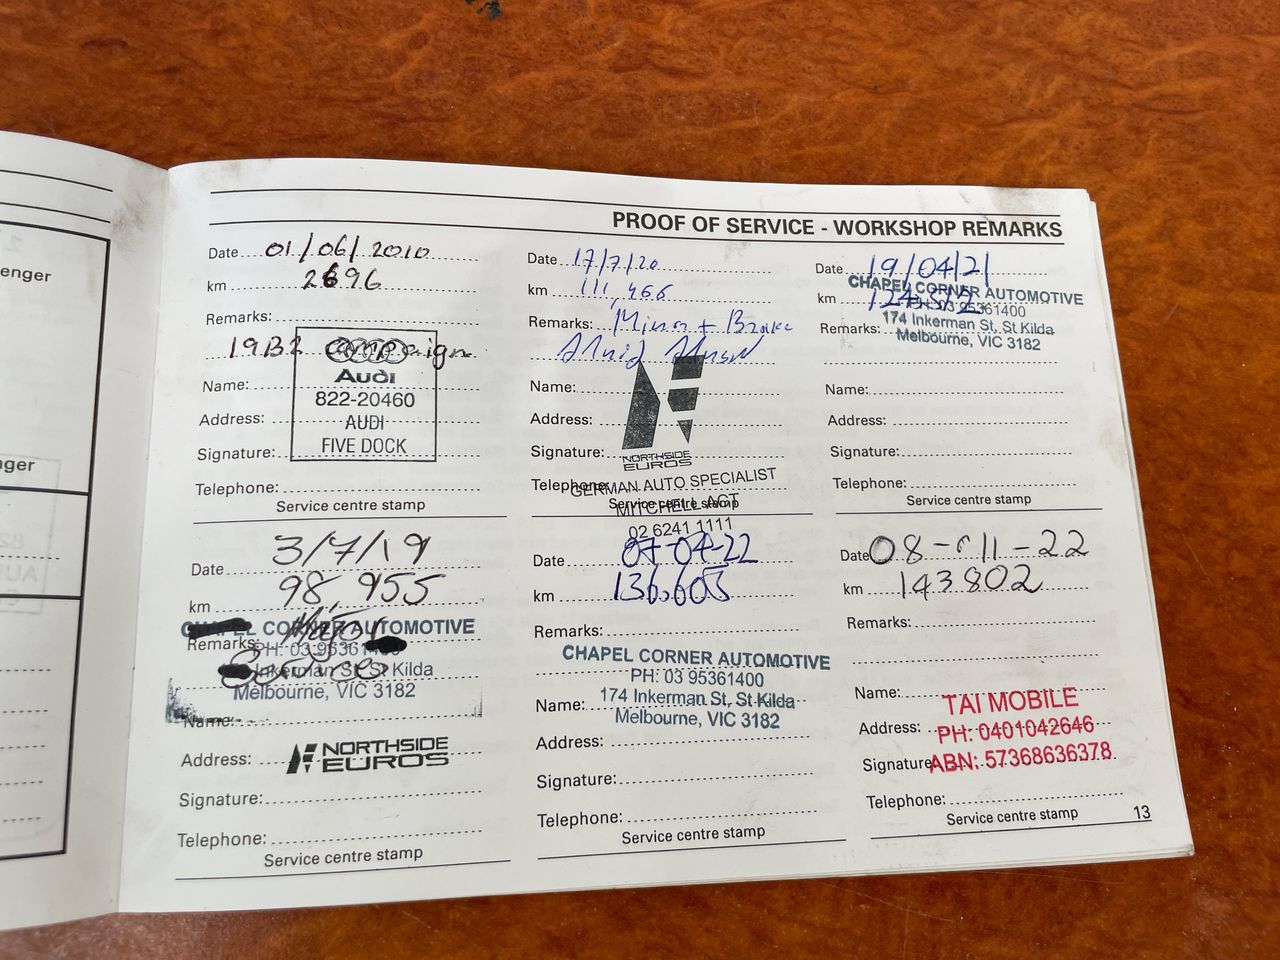 enger
ger
PROOF OF SERVICE - WORKSHOP REMARKS
Date 01/06/2010
km 2696
Remarks:
19B2 campaign
Audi
Name:
822-20460
Address:
AUDI
FIVE DOCK
Signature:
Telephone:
Service centre stamp
Date 17/7/20
km 111,466
Remarks: Minor + Brake
Fluid Flush
Name:
Address:
Signature:
NORTHSIDE
EUROS
Telephone:
GERMAN AUTO SPECIALIST
Service centre stamp
MITCHELL ACT
02 6241 1111
Date 19/04/21
CHAPEL CORNER AUTOMOTIVE
km
PH: 03 95361400
174 Inkerman St, St Kilda
Remarks:
Melbourne, VIC 3182
Name:
Address:
Signature:
Telephone:
Service centre stamp
Date 3/7/19
km 98,955
CHAPEL CORNER AUTOMOTIVE
Remarks: Major
PH: 03 95361400
Inkerman St, St Kilda
Melbourne, VIC 3182
Name:
Address:
NORTHSIDE
EUROS
Signature:
Telephone:
Service centre stamp
Date 07-04-22
km 136,605
Remarks:
CHAPEL CORNER AUTOMOTIVE
PH: 03 95361400
174 Inkerman St, St Kilda
Name:
Melbourne, VIC 3182
Address:
Signature:
Telephone:
Service centre stamp
Date 08-11-22
km 143802
Remarks:
Name:
TAI MOBILE
Address:
PH: 0401042646
Signature:
ABN: 57368636378
Telephone:
Service centre stamp
13